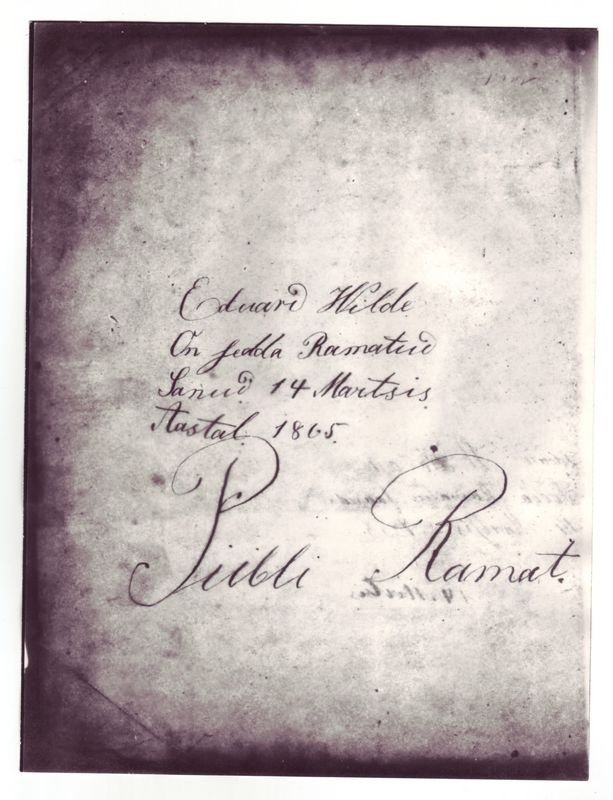 Eduard Wilde
On sedda Ramatud
Sanud 14 Martsis
Aastal 1865.
Piibli Ramat.